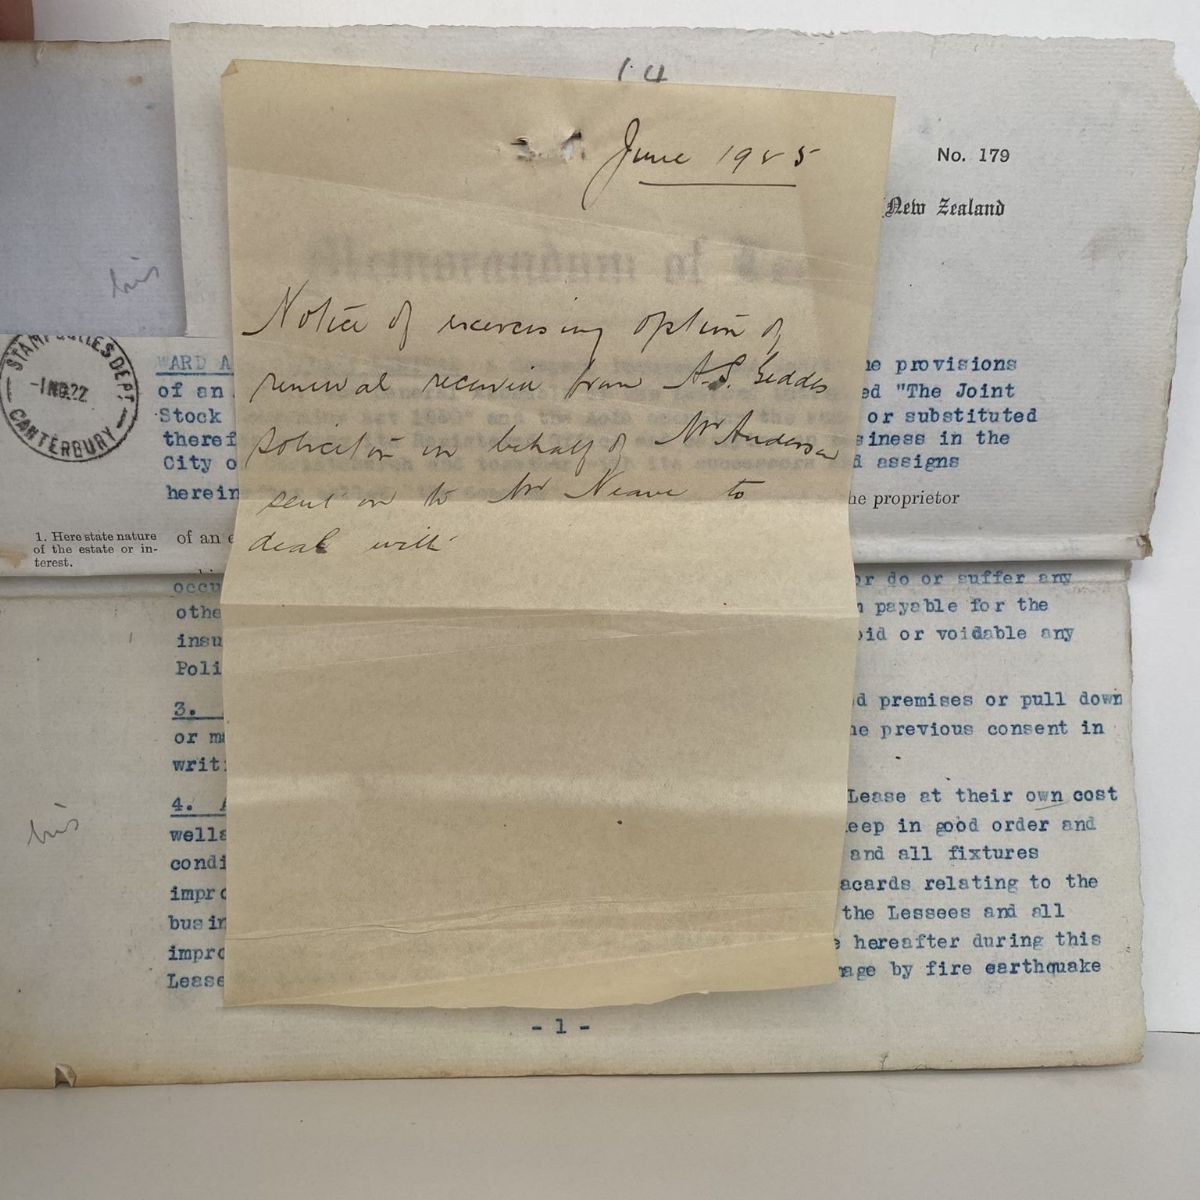 14
June 1985
No. 179
New Zealand
Memorandum of
Notice of exercising option of
renewal received from A.S. Geddes
solicitor on behalf of Mr Anderson
sent on to Mr Neave to
deal with
STAMP DUTIES DEPT
-1 NO.22
CANTERBURY
WARD A
he provisions
of an
ed "The Joint
Stock
or substituted
theref
siness in the
City o
d assigns
herein
he proprietor
1. Here state nature
of the estate or in-
terest.
of an e
occu
or do or suffer any
othe
n payable for the
insu
oid or voidable any
Poli
3.
d premises or pull down
or ma
he previous consent in
writ
4. A
Lease at their own cost
wells
eep in good order and
condi
and all fixtures
impro
acards relating to the
busin
the Lessees and all
impro
e hereafter during this
Lease
age by fire earthquake
- 1 -